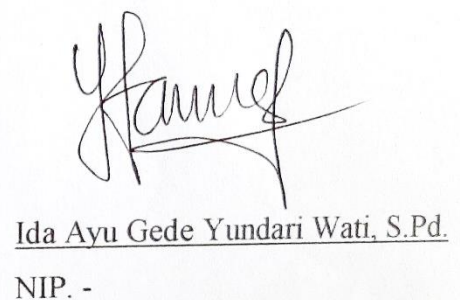 Ida Ayu Gede Yundari Wati, S.Pd.
NIP. -